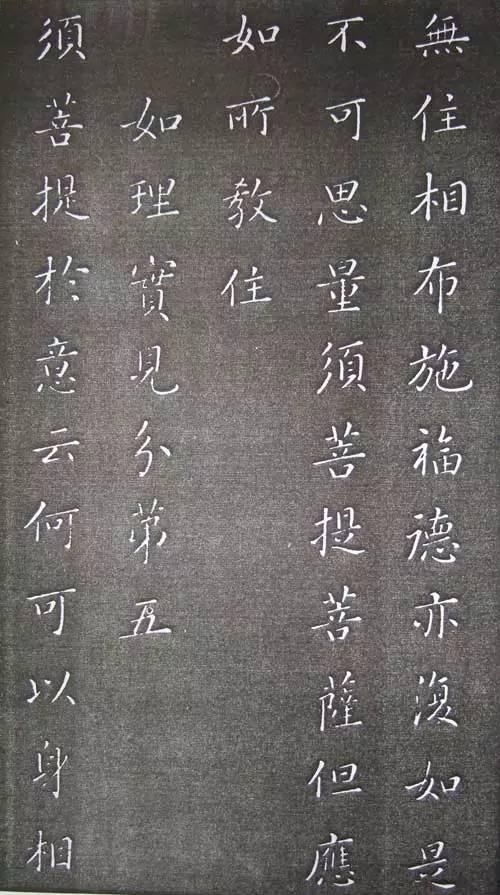 無住相布施福德亦復如是
不可思量須菩提菩薩但應
如所教住
如理實見分第五
須菩提於意云何可以身相